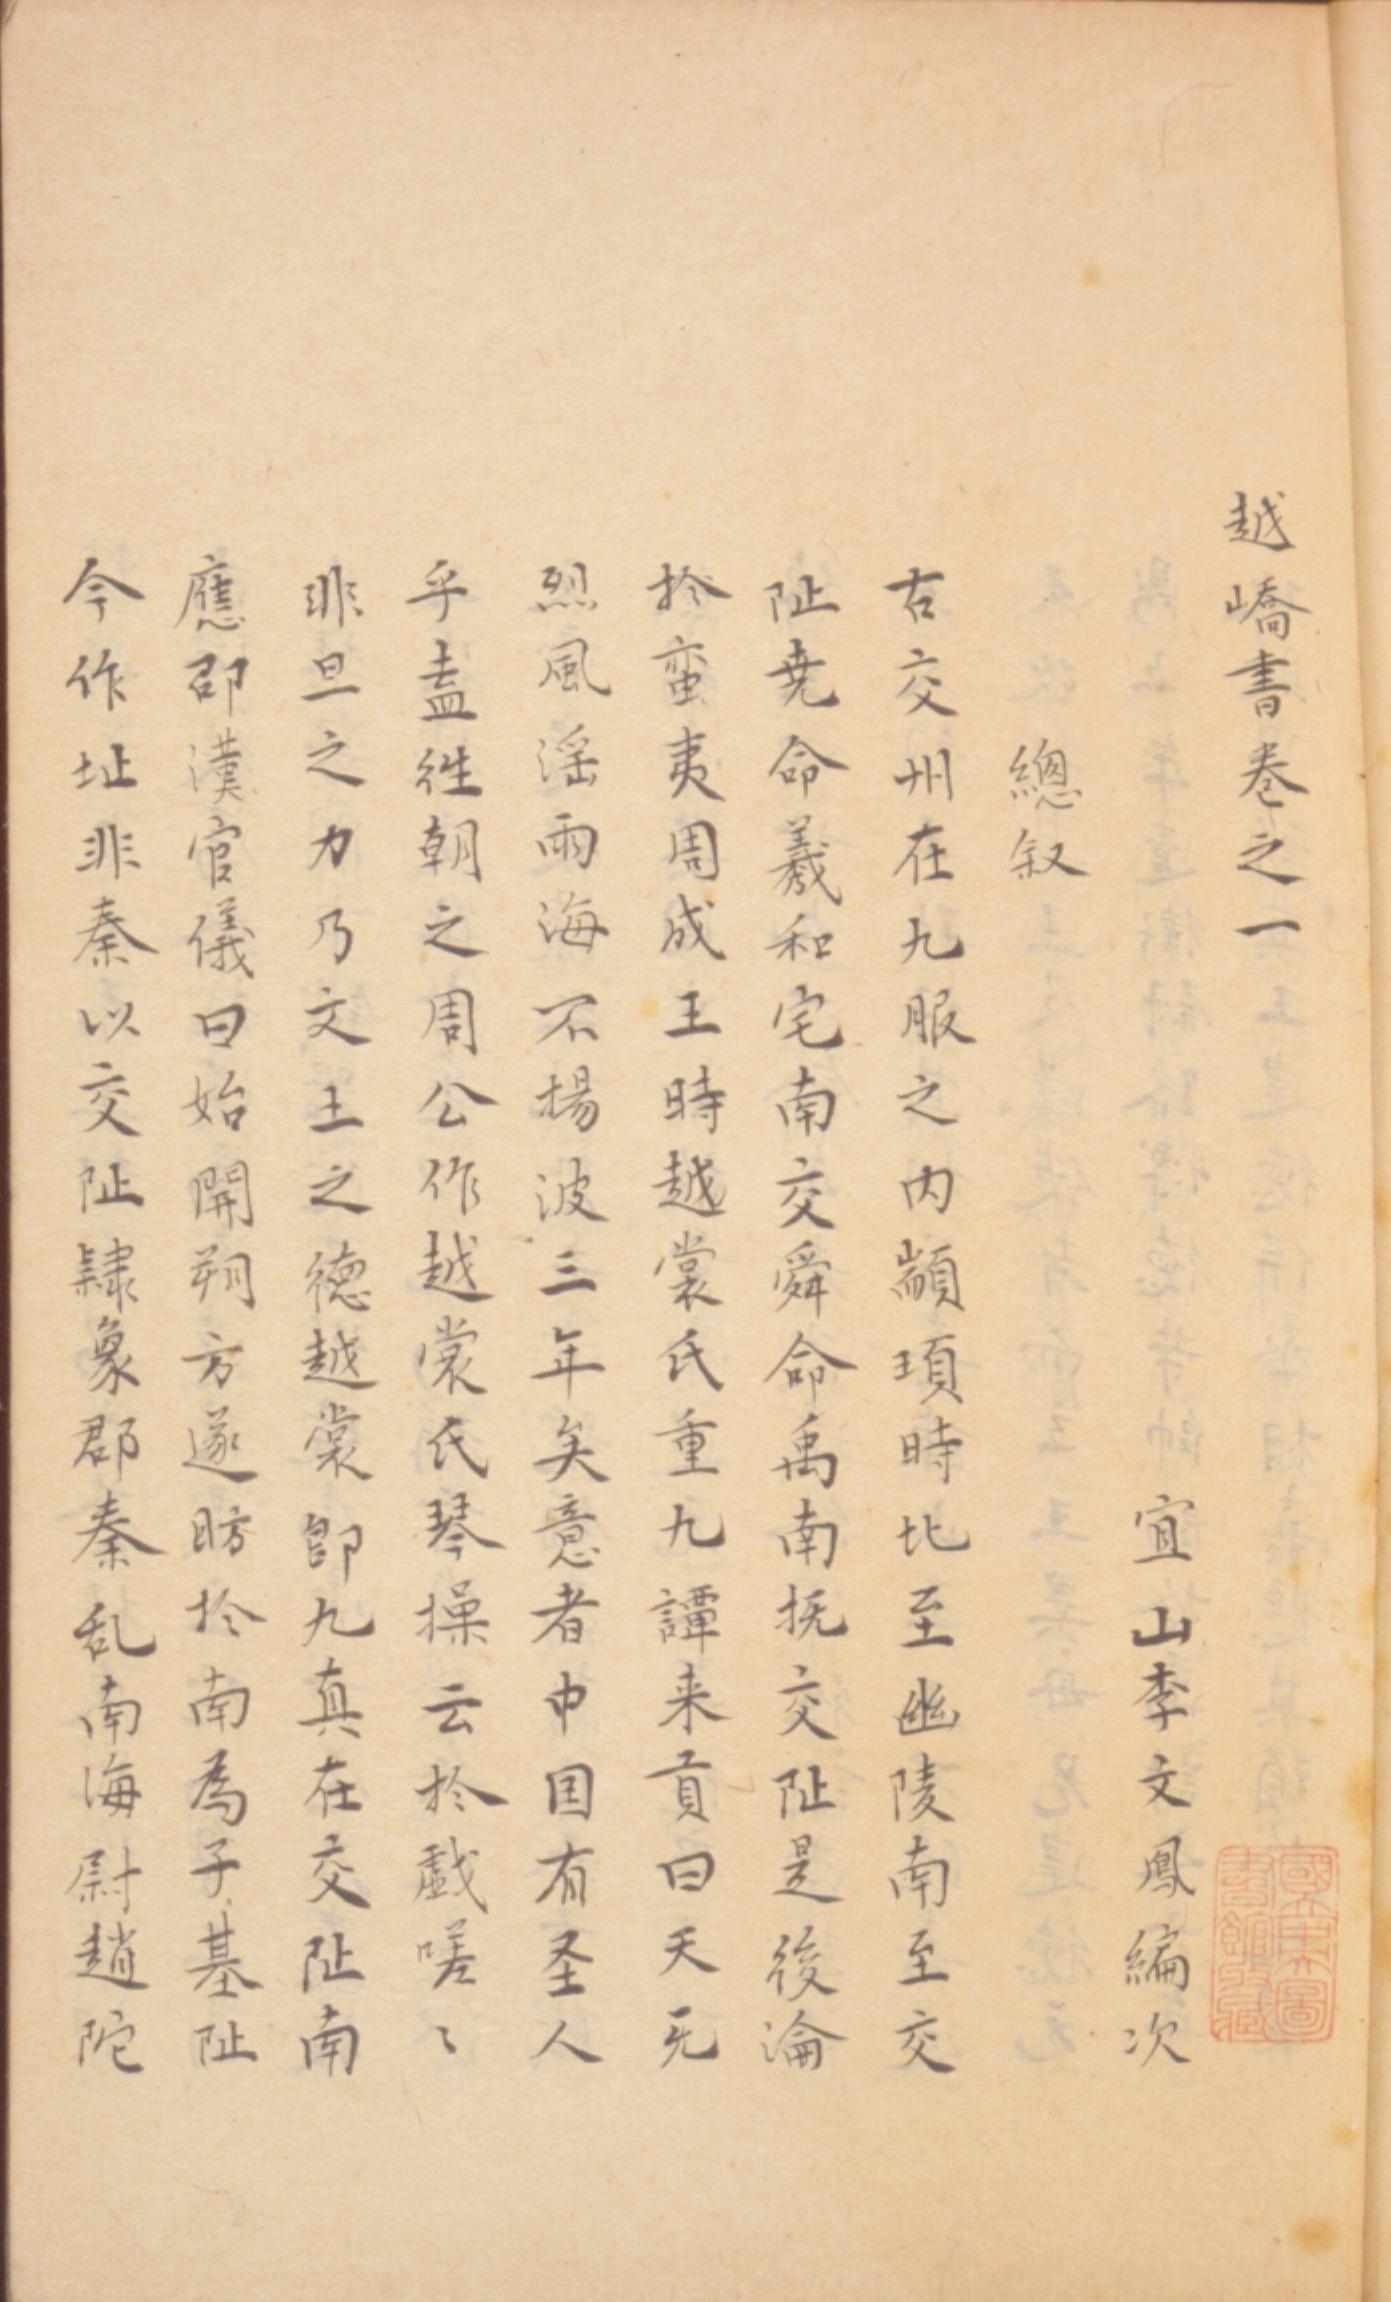 越嶠書卷之一
宜山李文鳳編次
總叙
古交州在九服之内顓頊時北至幽陵南至交
阯堯命羲和宅南交舜命禹南抚交阯是後淪
於蛮夷周成王時越裳氏重九譚来貢曰天无
烈風滛雨海不揚波三年矣意者中国有圣人
乎盍徃朝之周公作越裳氏琴操云於戲嗟〻
非旦之力乃文王之德越裳即九真在交阯南
應邵漢官儀曰始開朔方遂昉於南為子基阯
今作址非秦以交阯隸象郡秦乱南海尉趙陀
國立北平圖
書館收藏